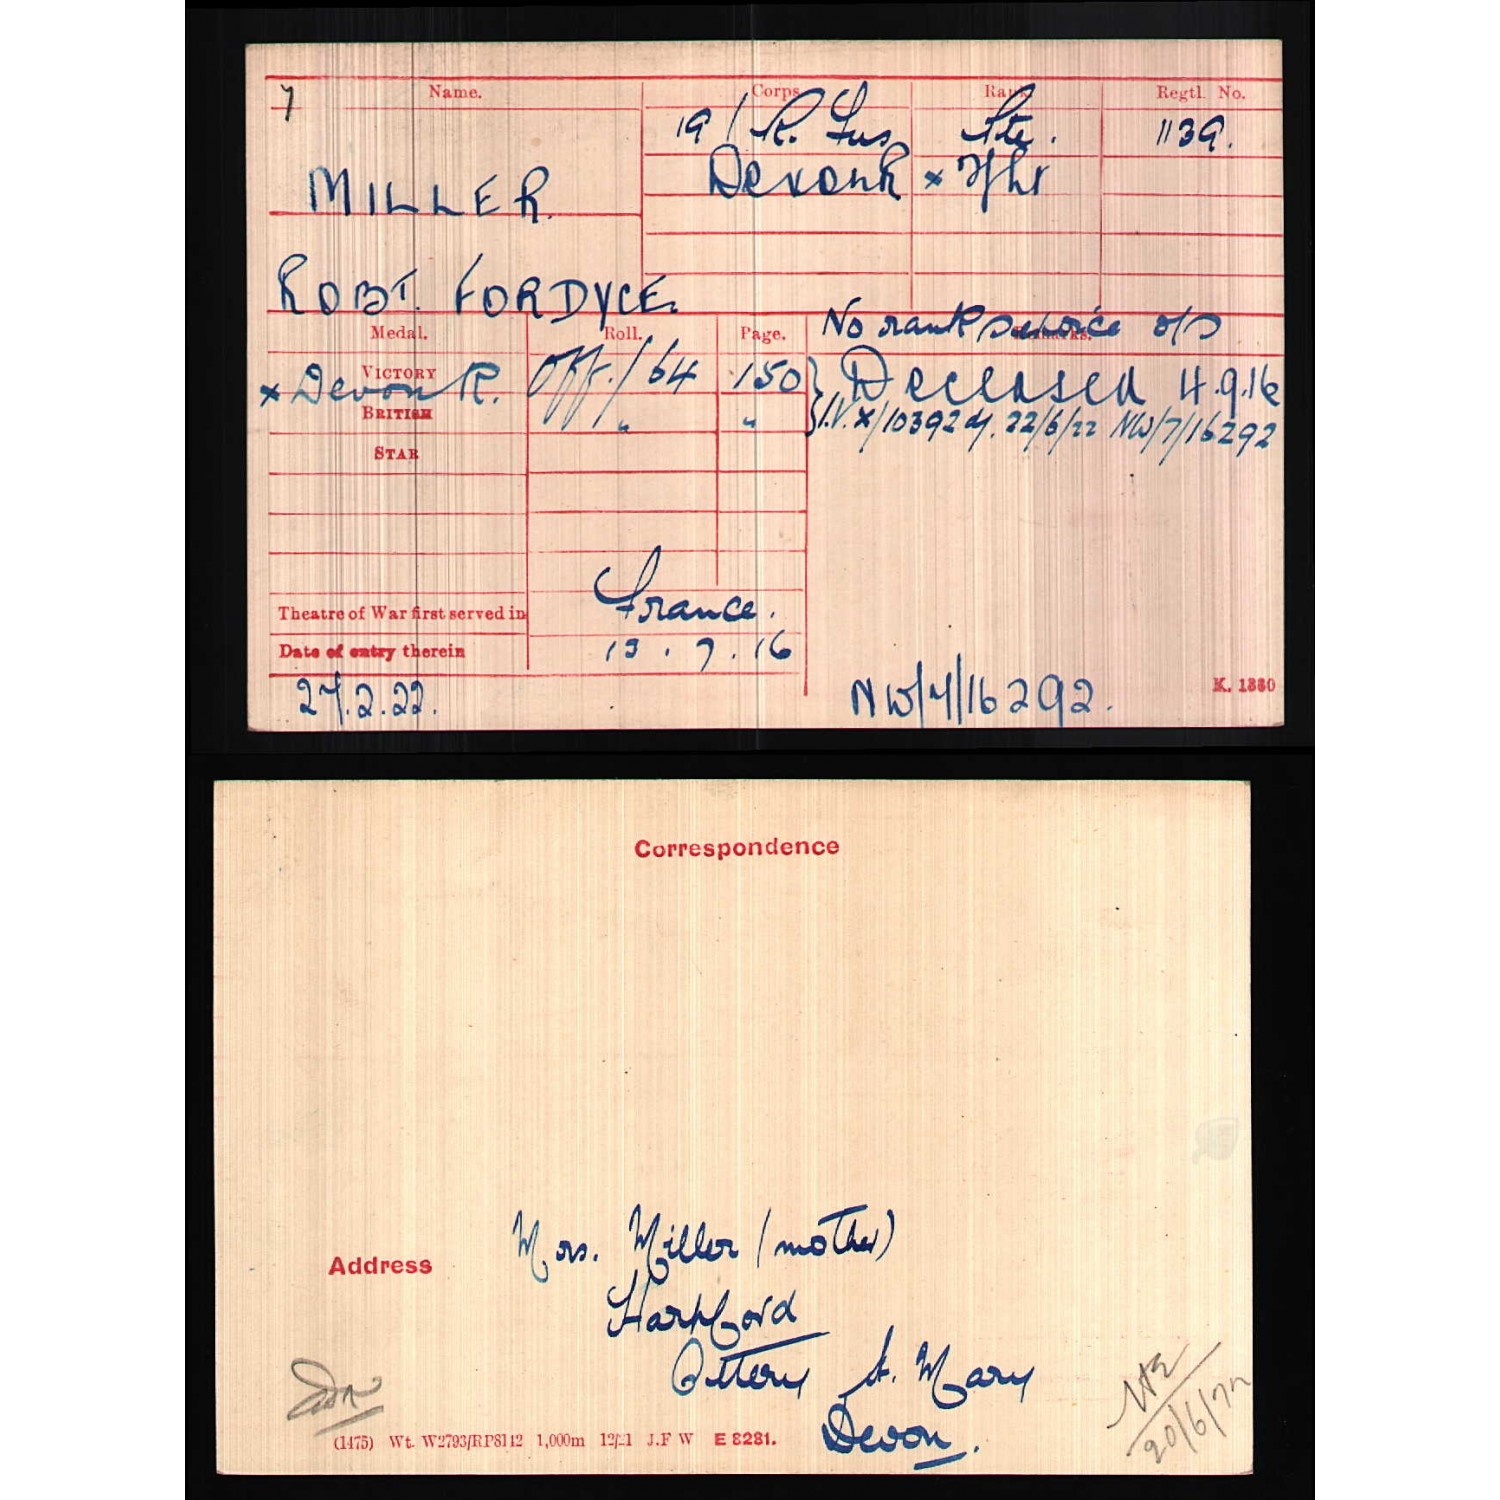 7
Name. Corps Rank Regtl. No.
19/R. Fus Pte. 1139.
MILLER DevonR × 2/Lt
ROBT. FORDYCE.
No rank service o/s
Medal. Roll. Page. Remarks.
VICTORY
× Devon R. Off./64 150 } Deceased 4.9.16
BRITISH " " } I.V. X/10392 22/6/22 NW/7/16292
STAR
Theatre of War first served in France.
Date of entry therein 13.7.16
27.2.22. NW/7/16292. K. 1380
Correspondence
Mrs. Miller (mother)
Address
Harpford
Ottery St. Mary
Devon.
(1475) Wt. W2793/RP8142 1,000m 12/21 J.F W E 8281.
20/6/22